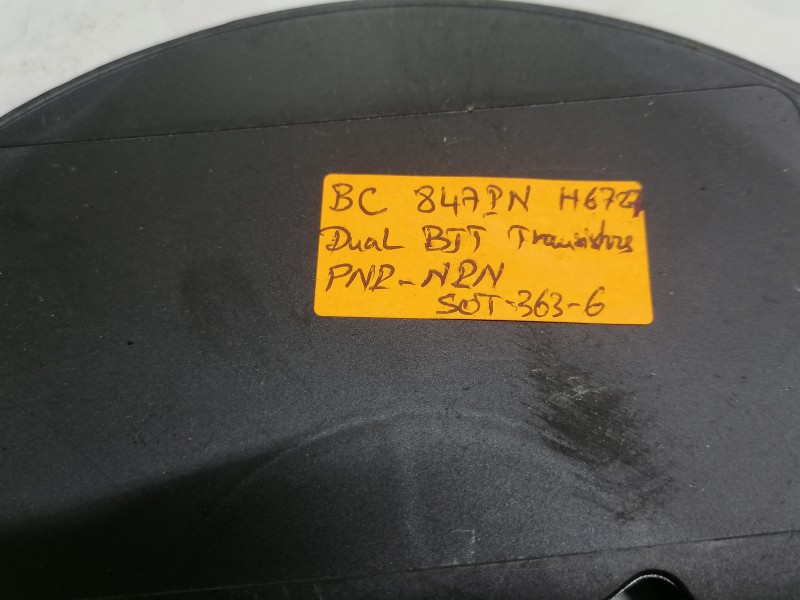 BC 847PN H6727
Dual BJT Transistors
PNP-NPN
SOT-363-6